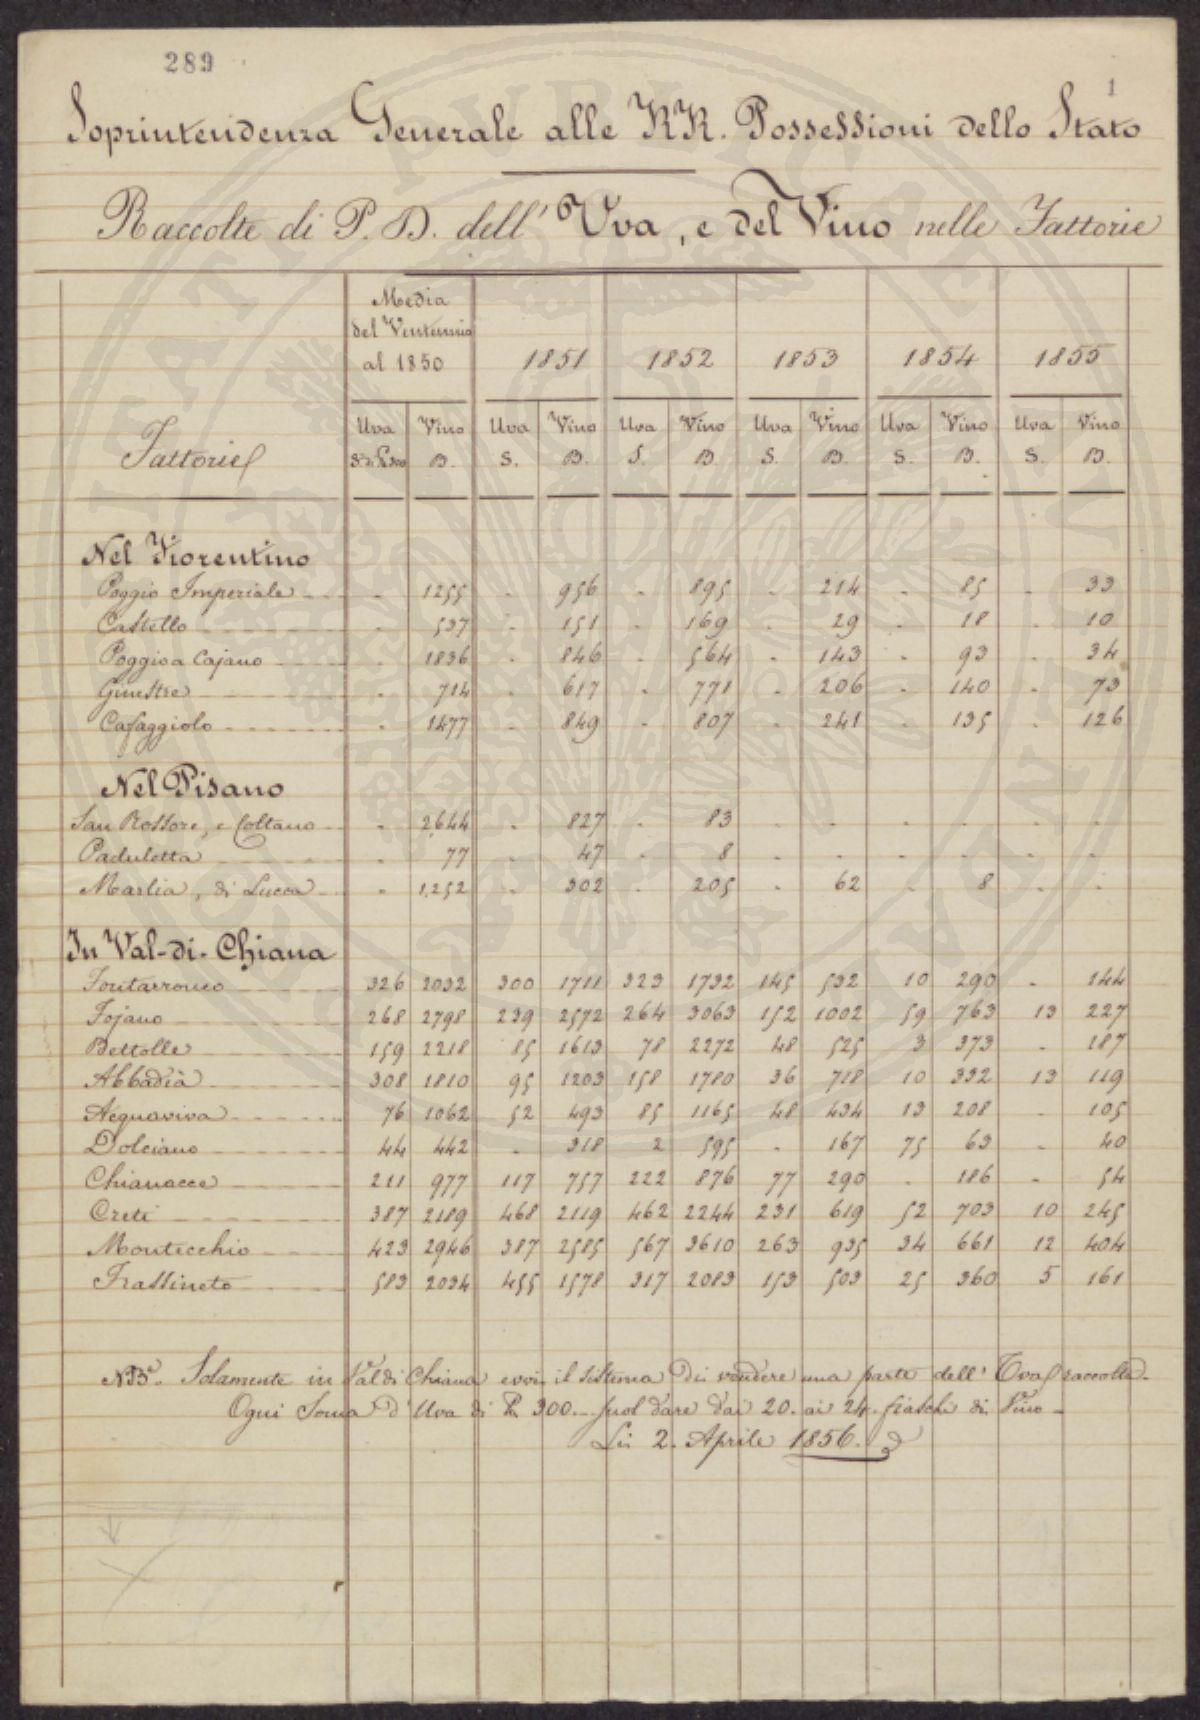 289
1
Soprintendenza Generale alle RR. Possessioni dello Stato
Raccolte di P. D. dell' Uva, e del Vino nelle Fattorie
Fattorie
Media
del Ventennio
al 1850 1851 1852 1853 1854 1855
Uva Vino Uva Vino Uva Vino Uva Vino Uva Vino Uva Vino
B. S. B. S. B. S. B. S. B. S. B.
Nel Fiorentino
Poggio Imperiale - 1255 - 956 - 895 - 214 - 85 - 33
Castello - 537 - 151 - 169 - 29 - 18 - 10
Poggio a Cajano - 1836 - 846 - 564 - 143 - 93 - 34
Ginestre - 714 - 617 - 771 - 206 - 140 - 73
Cafaggiolo - 1477 - 849 - 807 - 241 - 135 - 126
Nel Pisano
San Rossore, e Coltano - 2644 - 827 - 83 - - - - - -
Paduletta - 77 - 47 - 8 - - - - - -
Marlia, di Lucca - 1,252 - 302 - 205 - 62 - 8 - -
In Val-di-Chiana
Fontarronco 326 2032 300 1711 323 1732 145 532 10 290 - 144
Fojano 268 2798 239 2572 264 3063 152 1002 59 763 13 227
Bettolle 159 2218 85 1613 78 2272 48 525 3 373 - 187
Abbadia 308 1810 95 1203 158 1780 36 718 10 332 13 119
Acquaviva 76 1062 52 493 85 1165 48 434 13 208 - 105
Dolciano 44 442 - 318 2 595 - 167 75 63 - 40
Chianacce 211 977 117 757 222 876 77 290 - 186 - 54
Creti 387 2189 468 2119 462 2244 231 619 52 703 10 245
Montecchio 423 2946 387 2585 567 3610 263 935 34 661 12 404
Frassineto 583 2034 455 1578 317 2083 153 503 25 360 5 161
NBe. Solamente in Val di Chiana evvi il sistema di vendere una parte dell' Uva raccolta.
Ogni Soma d' Uva di 300.- suol dare dai 20. ai 24. fiaschi di Vino -
Li 2. Aprile 1856.